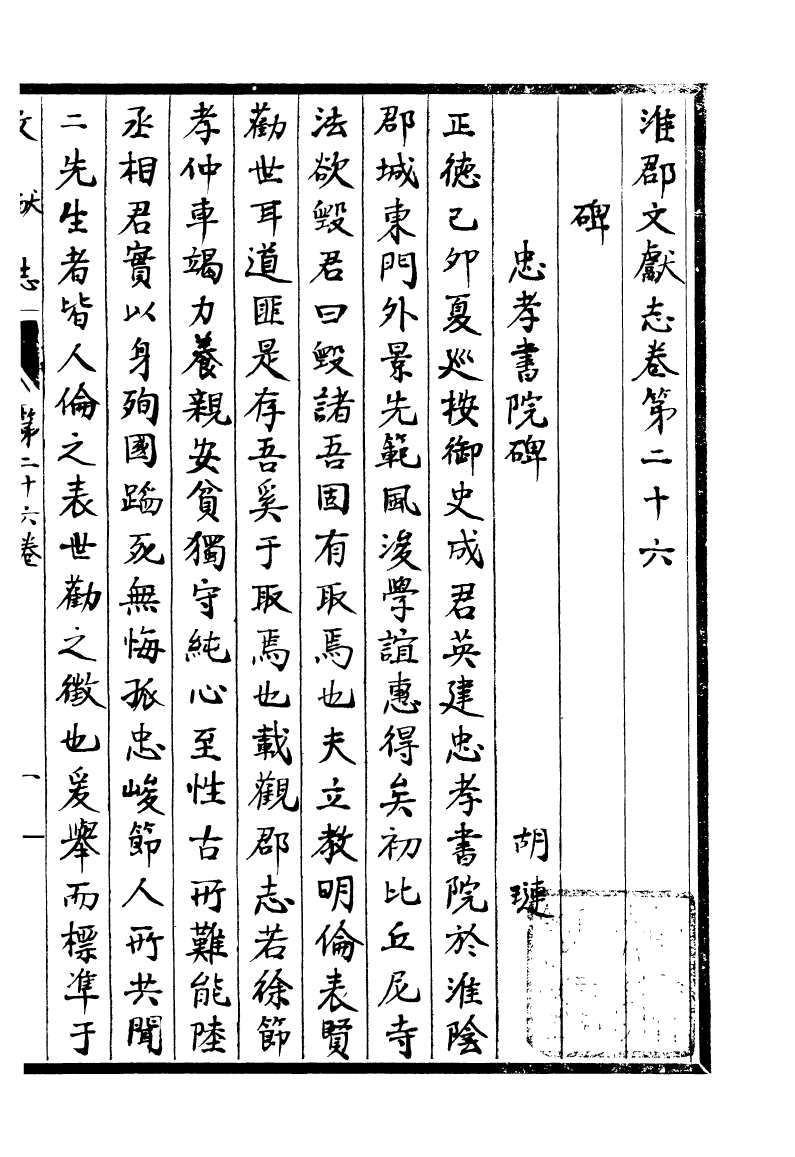 淮郡文獻志卷第二十六
碑
忠孝書院碑 胡璉
正德己卯夏巡按御史成君英建忠孝書院於淮陰
郡城東門外景先範風浚學誼惠得矣初比丘尼寺
法欲毀君曰毀諸吾固有取焉也夫立教明倫表賢
勸世耳道匪是存吾奚于取焉也載觀郡志若徐節
孝仲車竭力養親安貧獨守純心至性古所難能陸
丞相君實以身殉國蹈死無悔孤忠峻節人所共聞
二先生者皆人倫之表世勸之徵也爰舉而標準于
文獻志 第二十六卷 一